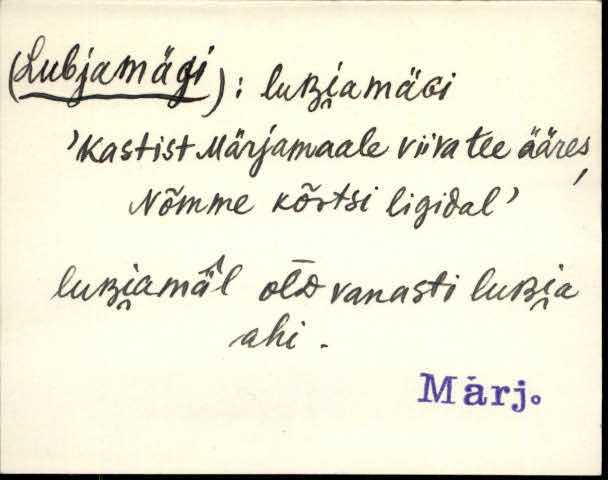 (Lubjamägi): luʙi̯amäɢi
'Kastist Märjamaale viiva tee ääres,
Nõmme kõrtsi ligidal'
luʙi̯amä̂l olᴅ vanasti luʙi̯a
ahi.
Märj.